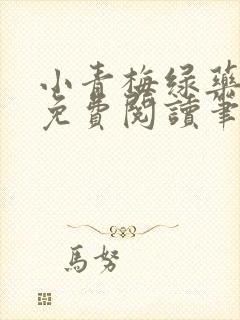 小青梅绿药
免費閱讀筆
馬努